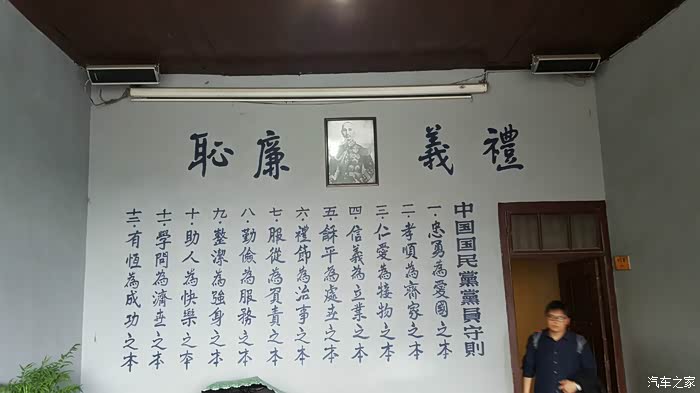 禮義廉恥
中国国民黨黨員守則
一·忠勇為愛國之本
二·孝順為齊家之本
三·仁愛為接物之本
四·信義為立業之本
五·龢平為處世之本
六·禮節為治事之本
七·服從為負責之本
八·勤儉為服務之本
九·整潔為強身之本
十·助人為快樂之本
十一·學問為濟世之本
十二·有恆為成功之本
汽车之家